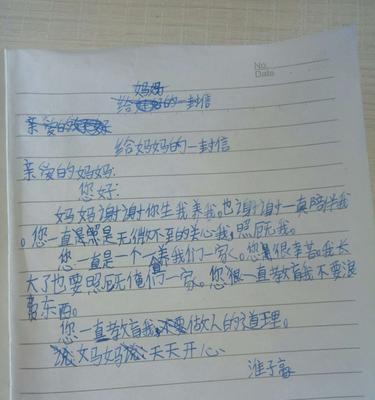 No.
Date
妈妈
给的一封信
亲爱的
给妈妈的一封信
亲爱的妈妈:
您好:
妈妈谢谢你生我养我。也谢谢一直陪伴我
。您一直是无微不至的关心我,照顾我。
您一直是一个养我们一家。您很辛苦。我长
大了也要照顾俺们一家。您一直教育我不要浪
费东西。
您一直教育我做人的道理。
妈妈天天开心